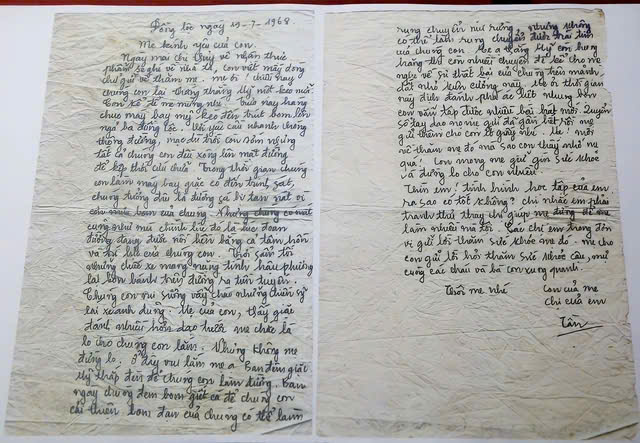 Đồng Lộc ngày 19-7-1968.
Mẹ kính yêu của con.
Ngày mai chị Quý về nhận thực
phẩm sẽ ghé về nhà ta, con viết mấy dòng
chữ gửi về thăm mẹ. Mẹ ơi! chiều nay
chúng con lại thắng thằng Mỹ một keo nữa.
Con kể để mẹ mừng nhé. Chiều nay hàng
chục máy bay Mỹ kéo đến trút bom lên
ngã ba Đồng Lộc. Với yêu cầu nhanh chóng
thông đường, mặc dù trời còn sớm nhưng
tất cả chúng con đều xông lên mặt đường
để kịp thời cứu chữa. Trong thời gian chúng
con làm máy bay giặc có đến trinh sát,
chúng tưởng đâu là đường sẽ bị tan nát vì
cơn mưa bom của chúng. Nhưng chúng có mắt
cũng như mù chính lúc đó là lúc đoạn
đường đang được nối liền bằng cả tâm hồn
và trí lực của chúng con. Trời sẩm tối
những chiếc xe mang nặng tình hậu phương
lại bon bánh trên đường ra tiền tuyến.
Chúng con vui sướng vẫy chào những chiến sỹ
lái xe anh dũng. Mẹ của con, thấy giặc
đánh nhiều hơn dạo trước mẹ chắc là
lo cho chúng con lắm. Nhưng không mẹ
đừng lo. Ở đây vui lắm mẹ ạ. Ban đêm giặc
Mỹ thắp đèn để chúng con làm đường. Ban
ngày chúng đem bom giết cá để chúng con
cải thiện bom đạn của chúng có thể làm
rung chuyển núi rừng, nhưng không
có thể làm rung chuyển được trái tim
của chúng con. Mẹ ạ thắng Mỹ con hứng
hãng thì con nhiều chuyện để kể cho mẹ
nghe về sự thất bại của chúng trên mảnh
đất nhỏ kiên cường này. Mẹ ơi thời gian
này địch đánh phá ác liệt nhưng bọn
con vẫn tập được nhiều bài hát mới. Quyển
sổ tay dạo nọ mẹ gửi đã gần hết rồi mẹ
gửi thêm cho con ít giấy nhé. Mẹ! mới
về thăm mẹ đó mà sao con thấy nhớ mẹ
quá! Con mong mẹ giữ gìn sức khỏe
và đừng lo cho con nhiều.
Thìn em! tình hình học tập của em
ra sao có tốt không? chị nhắc em phải
tranh thủ thay chị giúp mẹ đừng để mẹ
làm nhiều mà tội. Các chị em trong đơn
vị gửi lời thăm sức khỏe mẹ đó. Mẹ cho
con gửi lời hỏi thăm sức khỏe cậu, mợ
cùng các cháu và bà con xung quanh.
Thôi mẹ nhé Con của mẹ
Chị của em
Tần